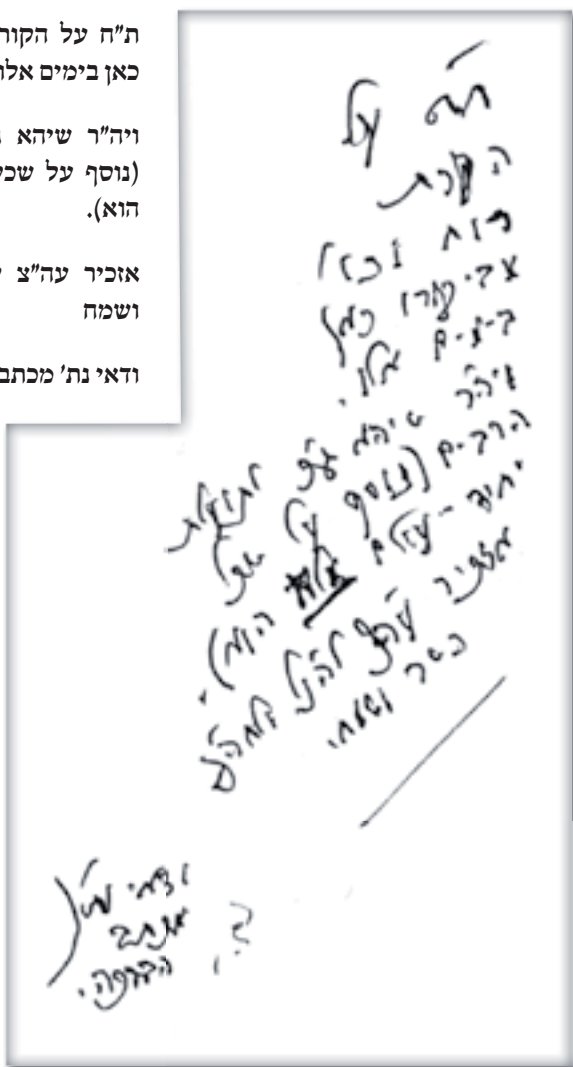 ת"ח על הקור
כאן בימים אלו
ויה"ר שיהא
(נוסף על שכ
הוא).
אזכיר עה"צ
ושמח
ודאי נת' מכתב
ת"ח על
הקורת
רוח וכו'
כאן
בימים אלו.
ויה"ר שיהא לתועלת
הרבים (נוסף על שכל
יחיד - עולם מלא הוא).
אזכיר עה"צ להנ"ל
כשר ושמח.
ודאי נת'
מכתב
הברכה.
?